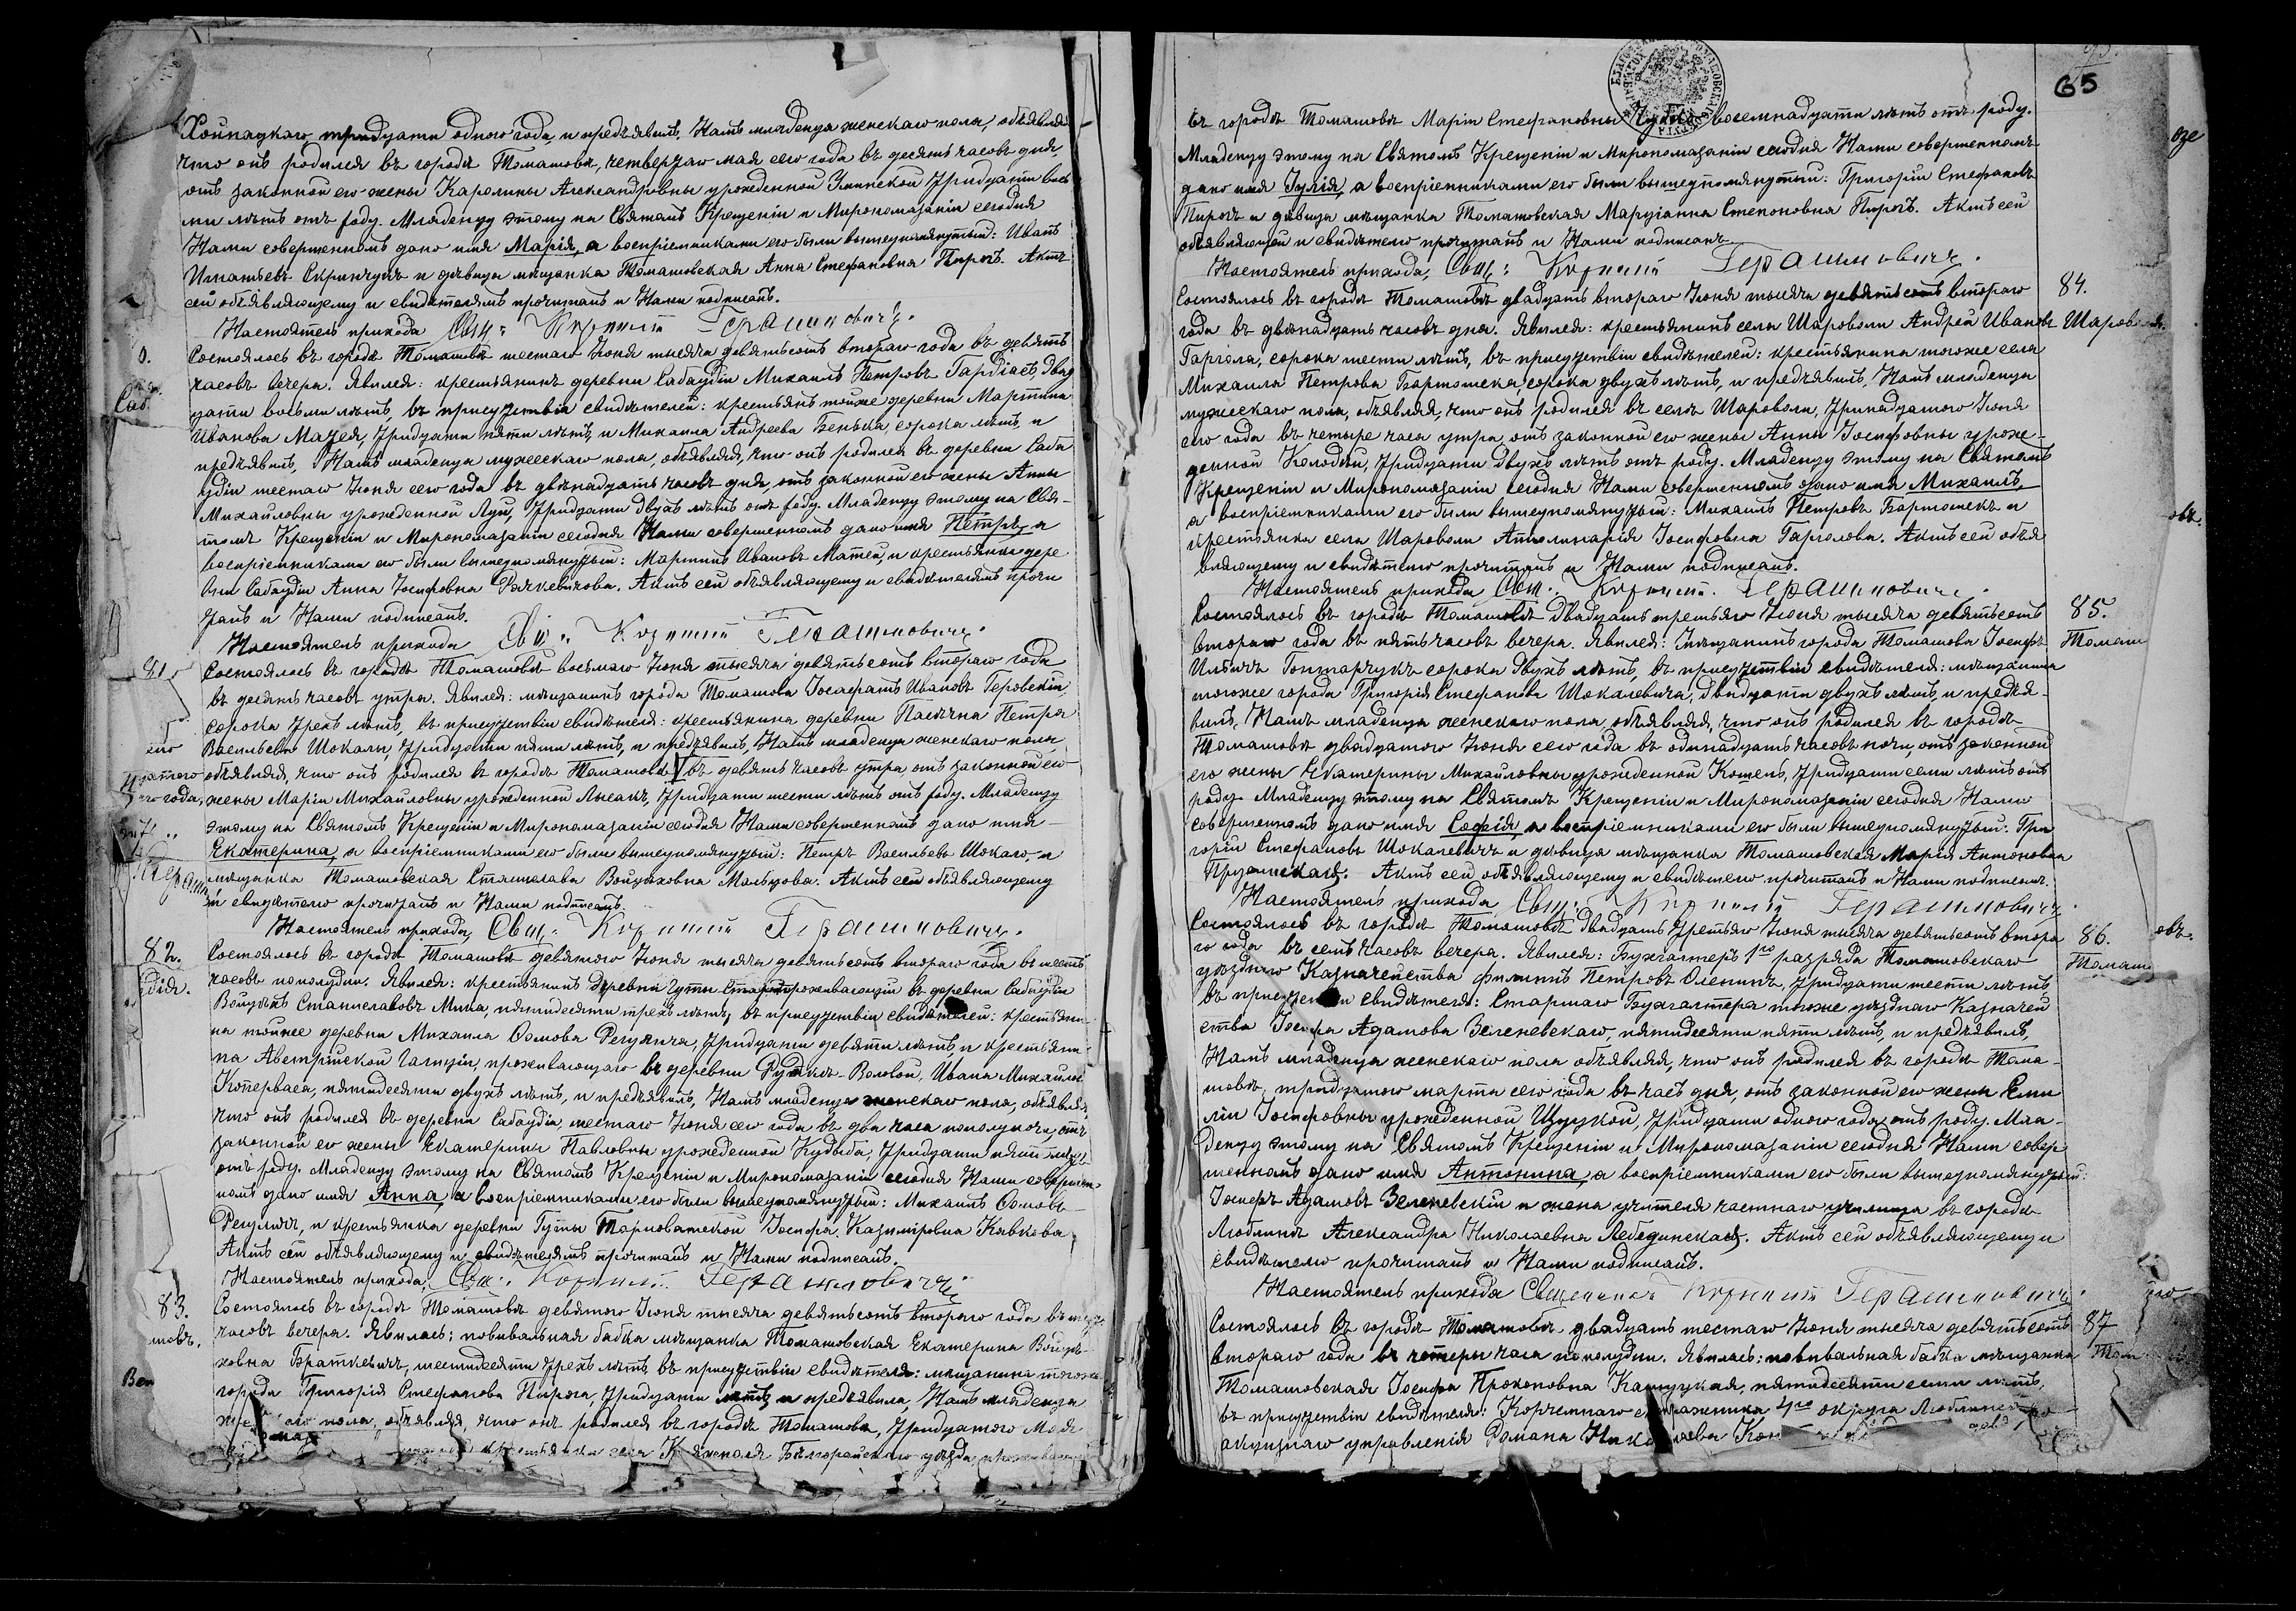 Хойнацкаго, тридцати одного года, и предъявилъ Намъ младенца женскаго пола, объявляя
что онъ родился въ городѣ Томашовѣ, четвертаго мая сего года въ десять часовъ дня,
отъ законной его жены Каролины Александровны урожденной тридцати вось
ми лѣтъ отъ роду. Младенцу этому на Святомъ Крещеніи и Миропомазаніи сегодня
Нами совершенномъ дано имя Марія, а воспріемниками его были вышеупомянутый: Иванъ
Игнатьевъ Скринчукъ и дѣвица мѣщанка Томашовская Анна Стефановна Пирогъ. Актъ
сей объявляющему и свидѣтелямъ прочитанъ и Нами подписанъ.
Настоятель прихода Свящ: Корнилій Герасимовичъ.
0.
Саб.
Состоялось въ городѣ Томашовѣ шестаго Іюня тысяча девятьсотъ втораго года въ девять
часовъ вечера. Явился: крестьянинъ деревни Сабаудіи Михаилъ Петровъ Гардіасъ, двад
цати восьми лѣтъ, въ присутствіи свидѣтелей: крестьянъ тойже деревни Мартина
Иванова Мацея, тридцати пяти лѣтъ, и Михаила Андреева Бенька, сорока лѣтъ, и
предъявилъ Намъ младенца мужескаго пола, объявляя, что онъ родился въ деревни Саба
удіи шестаго Іюня сего года въ двѣнадцать часовъ дня, отъ законной его жены Анны
Михайловны урожденной Луц, тридцати двухъ лѣтъ отъ роду. Младенцу этому на Свя-
томъ Крещеніи и Миропомазаніи сегодня Нами совершенномъ дано имя Петръ, а
воспріемниками его были вышеупомянутый: Мартинъ Ивановъ Мацей, и крестьянка дере
вни Сабаудіи Анна Іосифовна Рачкевичова. Актъ сей объявляющему и свидѣтелямъ прочи
танъ и Нами подписанъ.
Настоятель прихода Свящ: Корнилій Герасимовичъ.
81.
Состоялось въ городѣ Томашовѣ восьмаго Іюня тысяча девятьсотъ втораго года
въ десять часовъ утра. Явился: мѣщанинъ города Томашова Іосафатъ Ивановъ Геровскій
сорока трехъ лѣтъ, въ присутствіи свидѣтеля: крестьянина деревни Пасѣчна Петра
Васильева Шокало, тридцати пяти лѣтъ, и предъявилъ Намъ младенца женскаго пола
объявляя, что онъ родился въ городѣ Томашовѣ V въ девять часовъ утра, отъ законной его
жены Маріи Михайловны урожденной Лысакъ, тридцати шести лѣтъ отъ роду. Младенцу
этому на Святомъ Крещеніи и Миропомазаніи сегодня Нами совершенномъ дано имя
Екатерина, а воспріемниками его были вышеупомянутый: Петръ Васильевъ Шокало, и
мѣщанка Томашовская Станислава Войцѣховна Мальцова. Актъ сей объявляющему
и свидѣтелю прочитанъ и Нами подписанъ.
Настоятель прихода, Свящ: Корнилій Герасимовичъ.
82.
удія.
Состоялось въ городѣ Томашовѣ девятого Іюня тысяча девятьсотъ втораго года въ шесть
часовъ пополудни. Явился: крестьянинъ деревни Гуты проживающій въ деревни Сабаудіи
Войцѣхъ Станиславовъ Миша, пятидесяти трехъ лѣтъ, въ присутствіи свидѣтелей: крестьяни-
на тойже деревни Михаила Ѳомова тридцати девяти лѣтъ, и крестьяни-
на Австрійской Галиціи, проживающаго въ деревни Рудкѣ-Воловой, Ивана Михайлова
пятидесяти двухъ лѣтъ, и предъявилъ Намъ младенца женскаго пола, объявляя,
что онъ родился въ деревни Сабаудіи, шестаго Іюня сего года въ два часа пополуночи, отъ
законной его жены Екатерины Павловны урожденной Кудыба, тридцати пяти лѣтъ
отъ роду. Младенцу этому на Святомъ Крещеніи и Миропомазаніи сегодня Нами совершен-
номъ дано имя Анна, а воспріемниками его были вышеупомянутый: Михаилъ Ѳомовъ
и крестьянка деревни Гуты Тарноватской Іосифа Казиміровна Кавкова.
Актъ сей объявляющему и свидѣтелямъ прочитанъ и Нами подписанъ.
Настоятель прихода, Свящ: Корнилій Герасимовичъ
83.
Состоялось въ городѣ Томашовѣ девятого Іюня тысяча девятьсотъ втораго года въ
часовъ вечера. Явилась: повивальная бабка мѣщанка Томашовская Екатерина Войцѣ-
ховна Браткевичъ, шестидесяти трехъ лѣтъ, въ присутствіи свидѣтеля: мѣщанина тогоже
города Григорія Стефанова Пирога, тридцати лѣтъ, и предъявила Намъ младенца
женскаго пола, объявляя, что онъ родился въ городѣ Томашовѣ, тридцатого Мая
крестьянки села Княжполя Бѣлгорайскаго уѣзда, проживающей
65
въ городѣ Томашовѣ Маріи Стефановны восемнадцати лѣтъ отъ роду.
Младенцу этому на Святомъ Крещеніи и Миропомазаніи сегодня Нами совершенномъ
дано имя Іулія, а воспріемниками его были вышеупомянутый: Григорій Стефановъ
Пирогъ и дѣвица мѣщанка Томашовская Маріанна Степоновна Пирогъ. Актъ сей
объявляющей и свидѣтелю прочитанъ и Нами подписанъ
Настоятель прихода, Свящ: Корнилій Герасимовичъ.
84.
Состоялось въ городѣ Томашовѣ двадцать втораго Іюня тысяча девятьсотъ втораго
года въ двѣнадцать часовъ дня. Явился: крестьянинъ села Шароволи Андрей Ивановъ
Гаргола, сорока шести лѣтъ, въ присутствіи свидѣтелей: крестьянина тогоже села
Михаила Петрова Бартошека, сорока двухъ лѣтъ, и предъявилъ Намъ младенца
мужескаго пола, объявляя, что онъ родился въ селѣ Шароволи, тринадцатого Іюня
сего года въ четыре часа утра, отъ законной его жены Анны Іосифовны урож-
денной Колодѣй, тридцати двухъ лѣтъ отъ роду. Младенцу этому на Святомъ
Крещеніи и Миропомазаніи сегодня Нами совершенномъ дано имя Михаилъ,
а воспріемниками его были вышеупомянутый: Михаилъ Петровъ Бартошекъ и
крестьянка села Шароволи Аполинарія Іосифовна Гарголова. Актъ сей объя
вляющему и свидѣтелю прочитанъ и Нами подписанъ.
Настоятель прихода Свящ: Корнилій Герасимовичъ.
85.
Томаш
Состоялось въ городѣ Томашовѣ двадцать третьяго Іюня тысяча девятьсотъ
втораго года въ пять часовъ вечера. Явился: мѣщанинъ города Томашова Іосифъ
Ильичъ Гонтарчукъ сорока двухъ лѣтъ, въ присутствіи свидѣтеля: мѣщанина
тогоже города Григорія Стефанова Шокалевича, двадцати двухъ лѣтъ, и предъя-
вилъ Намъ младенца женскаго пола, объявляя, что онъ родился въ городѣ
Томашовѣ двадцатого Іюня сего года въ одинадцать часовъ ночи, отъ законной
его жены Екатерины Михайловны урожденной Кошель, тридцати семи лѣтъ отъ
роду. Младенцу этому на Святомъ Крещеніи и Миропомазаніи сегодня Нами
совершенномъ дано имя Софія, а воспріемниками его были вышеупомянутый: Гри
горій Стефановъ Шокалевичъ и дѣвица мѣщанка Томашовская Марія Антоновна
Актъ сей объявляющему и свидѣтелю прочитанъ и Нами подписанъ.
Настоятель прихода Свящ: Корнилій Герасимовичъ
86.
Томаш
Состоялось въ городѣ Томашовѣ двадцать третьяго Іюня тысяча девятьсотъ второ
го года въ семь часовъ вечера. Явился: Бухгалтеръ 1го разряда Томашовскаго
уѣзднаго Казначейства Филипъ Петровъ Оленинъ, тридцати шести лѣтъ
въ присутствіи свидѣтеля: Старшаго Бухгалтера тогоже уѣзднаго Казначей
ства Іосифа Адамова Зеленевскаго, пятидесяти пяти лѣтъ, и предъявилъ,
Намъ младенца женскаго пола объявляя, что онъ родился въ городѣ Тома-
шовѣ, тридцатого марта сего года въ часъ дня, отъ законной его жены Еми
ліи Іосифовны урожденной Щуцкой, тридцати одного года отъ роду. Мла-
денцу этому на Святомъ Крещеніи и Миропомазаніи сегодня Нами совер-
шенномъ дано имя Антонина, а воспріемниками его были вышеупомянутый:
Іосифъ Адамовъ Зеленевскій и жена учителя частнаго училища въ городѣ
Люблинѣ Александра Николаевна Лебединская. Актъ сей объявляющему и
свидѣтелю прочитанъ и Нами подписанъ.
Настоятель прихода Священникъ Корнилій Герасимовичъ.
87
Том
Состоялось въ городѣ Томашовѣ двадцать шестаго Іюня тысяча девятьсотъ
втораго года въ четыре часа пополудни. Явилась: повивальная бабка мѣщанка
Томашовская Іосифа Прокоповна пятидесяти семи лѣтъ,
въ присутствіи свидѣтеля: Корчемнаго стражника 4го округа Люблинскаго
акцизнаго управленія Романа Николаева